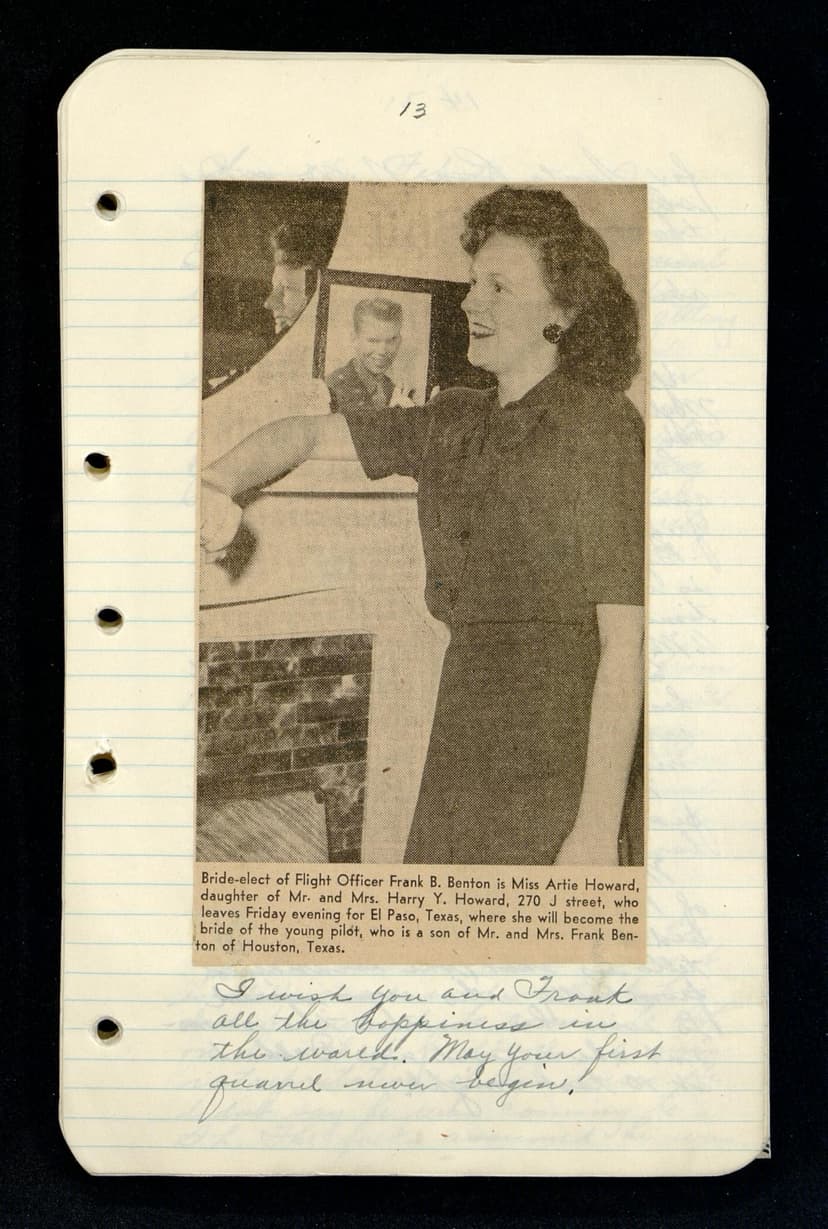 13
Bride-elect of Flight Officer Frank B. Benton is Miss Artie Howard,
daughter of Mr. and Mrs. Harry Y. Howard, 270 J street, who
leaves Friday evening for El Paso, Texas, where she will become the
bride of the young pilot, who is a son of Mr. and Mrs. Frank Ben-
ton of Houston, Texas.
I wish you and Frank
all the happiness in
the world. May your first
quarrel never begin.